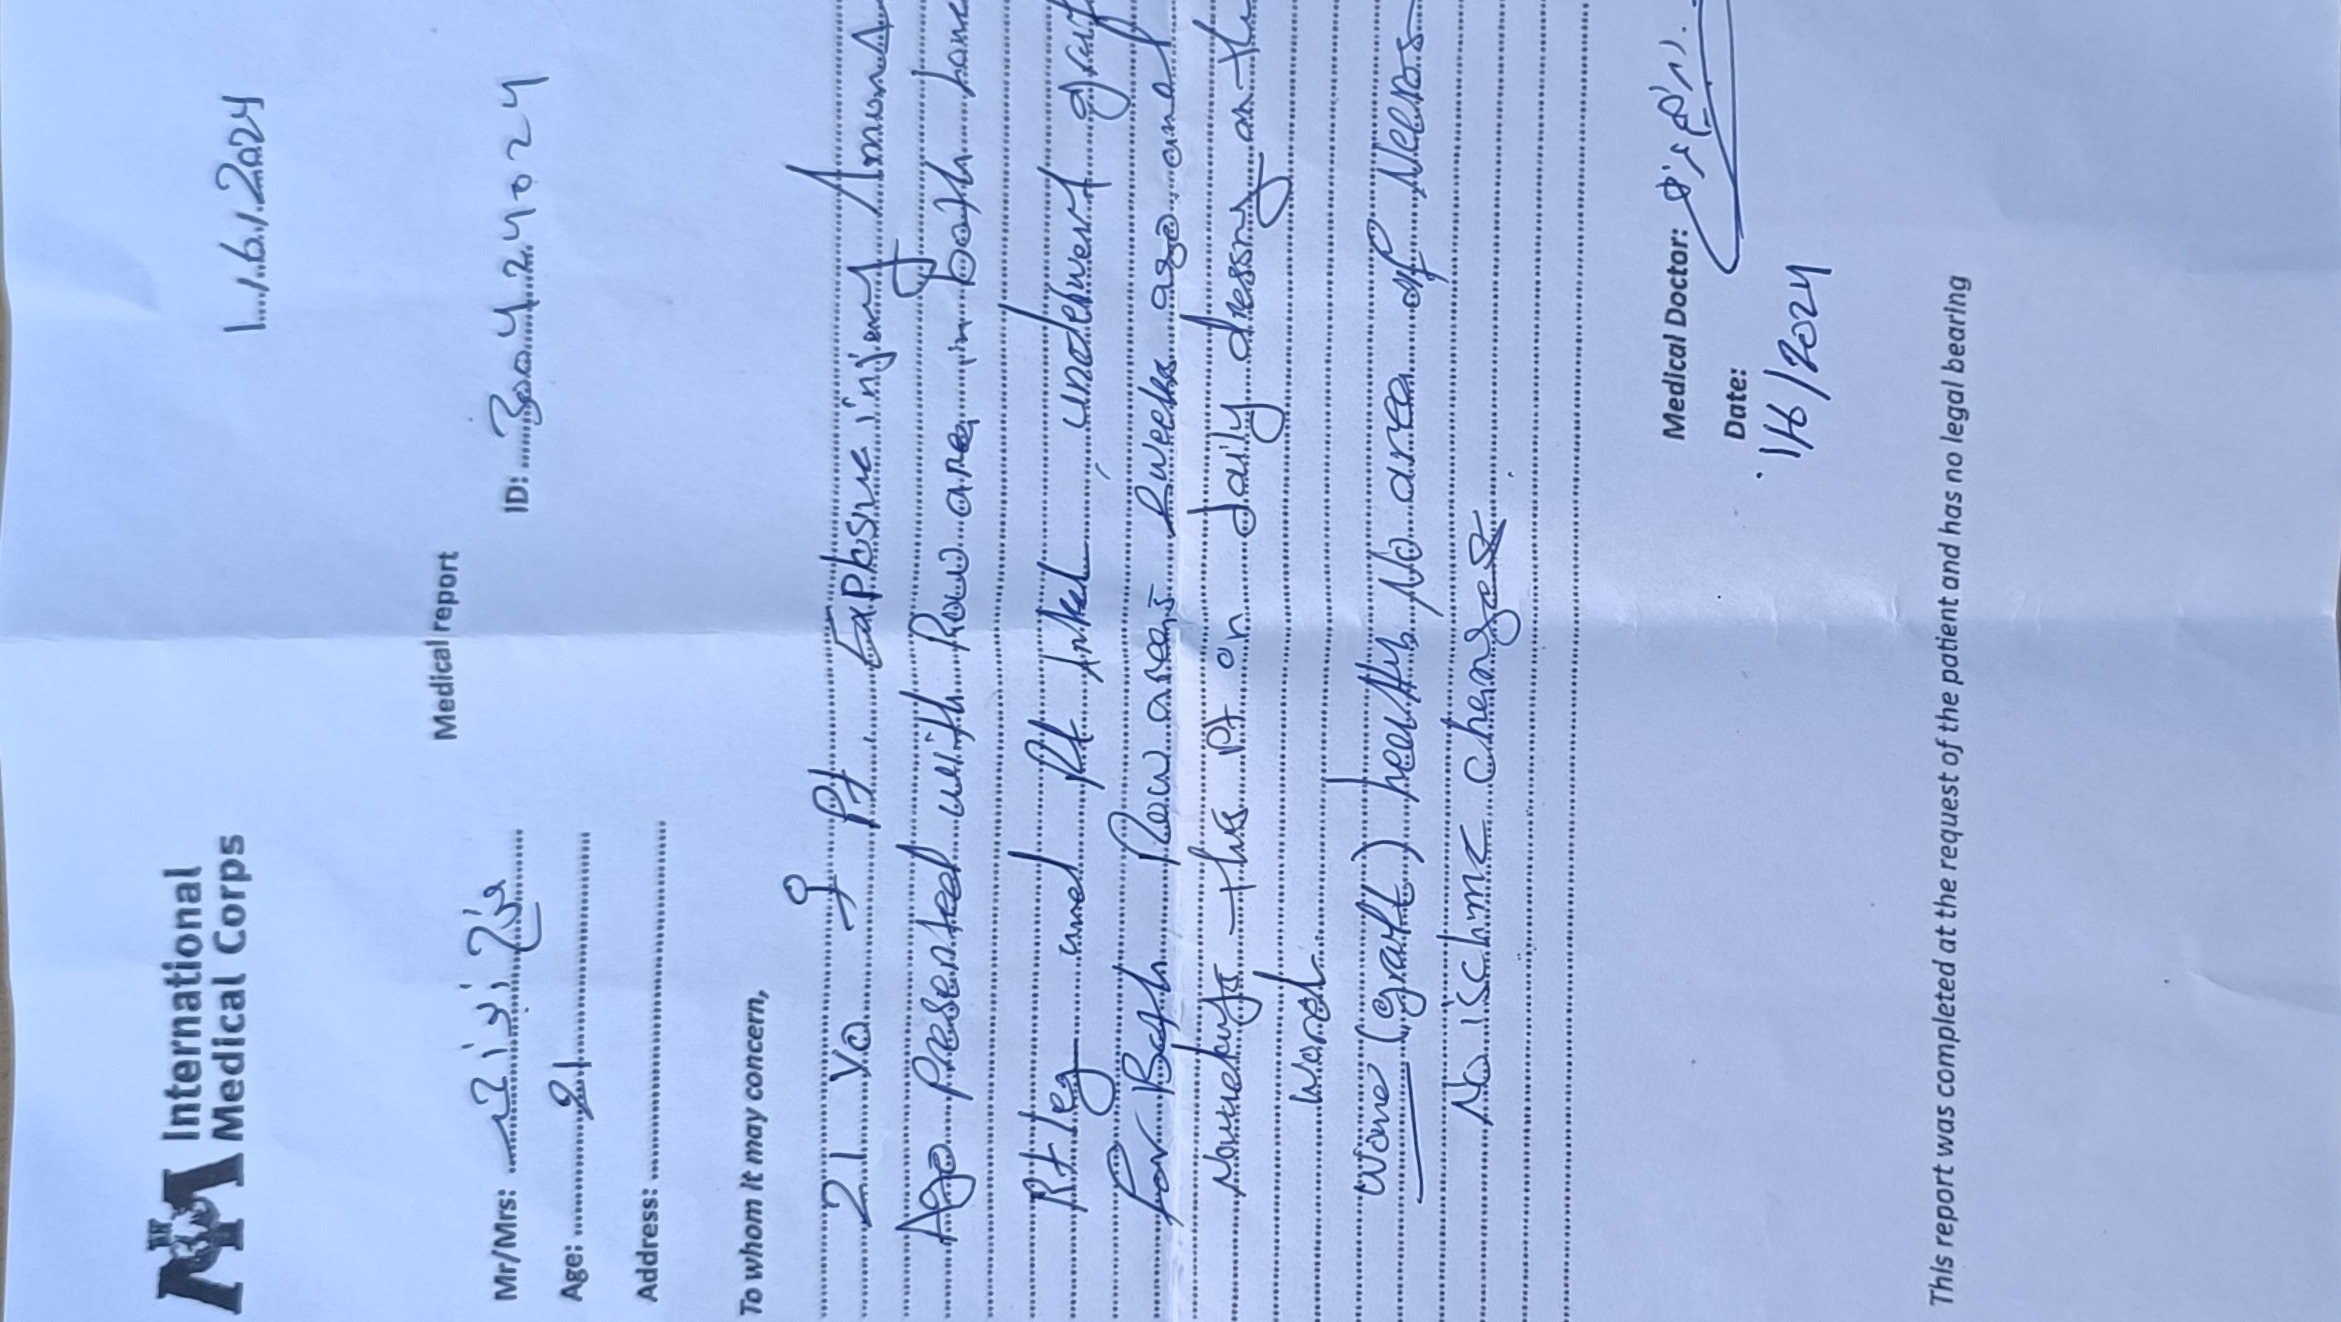 International
Medical Corps
1/6/2024
Medical report
Mr/Mrs:
ID: 30042.4024
Age: 21
Address:
To whom it may concern,
21 yo ♀ Pt. Explosive injury Amonst
Ago Presented with Row area in both hand
Rt leg and Rt Ankel underwent graft
for Both Row areas 2 weeks ago and
Nowdays this Pt on daily dressing on th
Wond
Wone (graft) healthy No area of Necros
No ischmc changes
Medical Doctor:
Date:
1/6/2024
This report was completed at the request of the patient and has no legal bearing